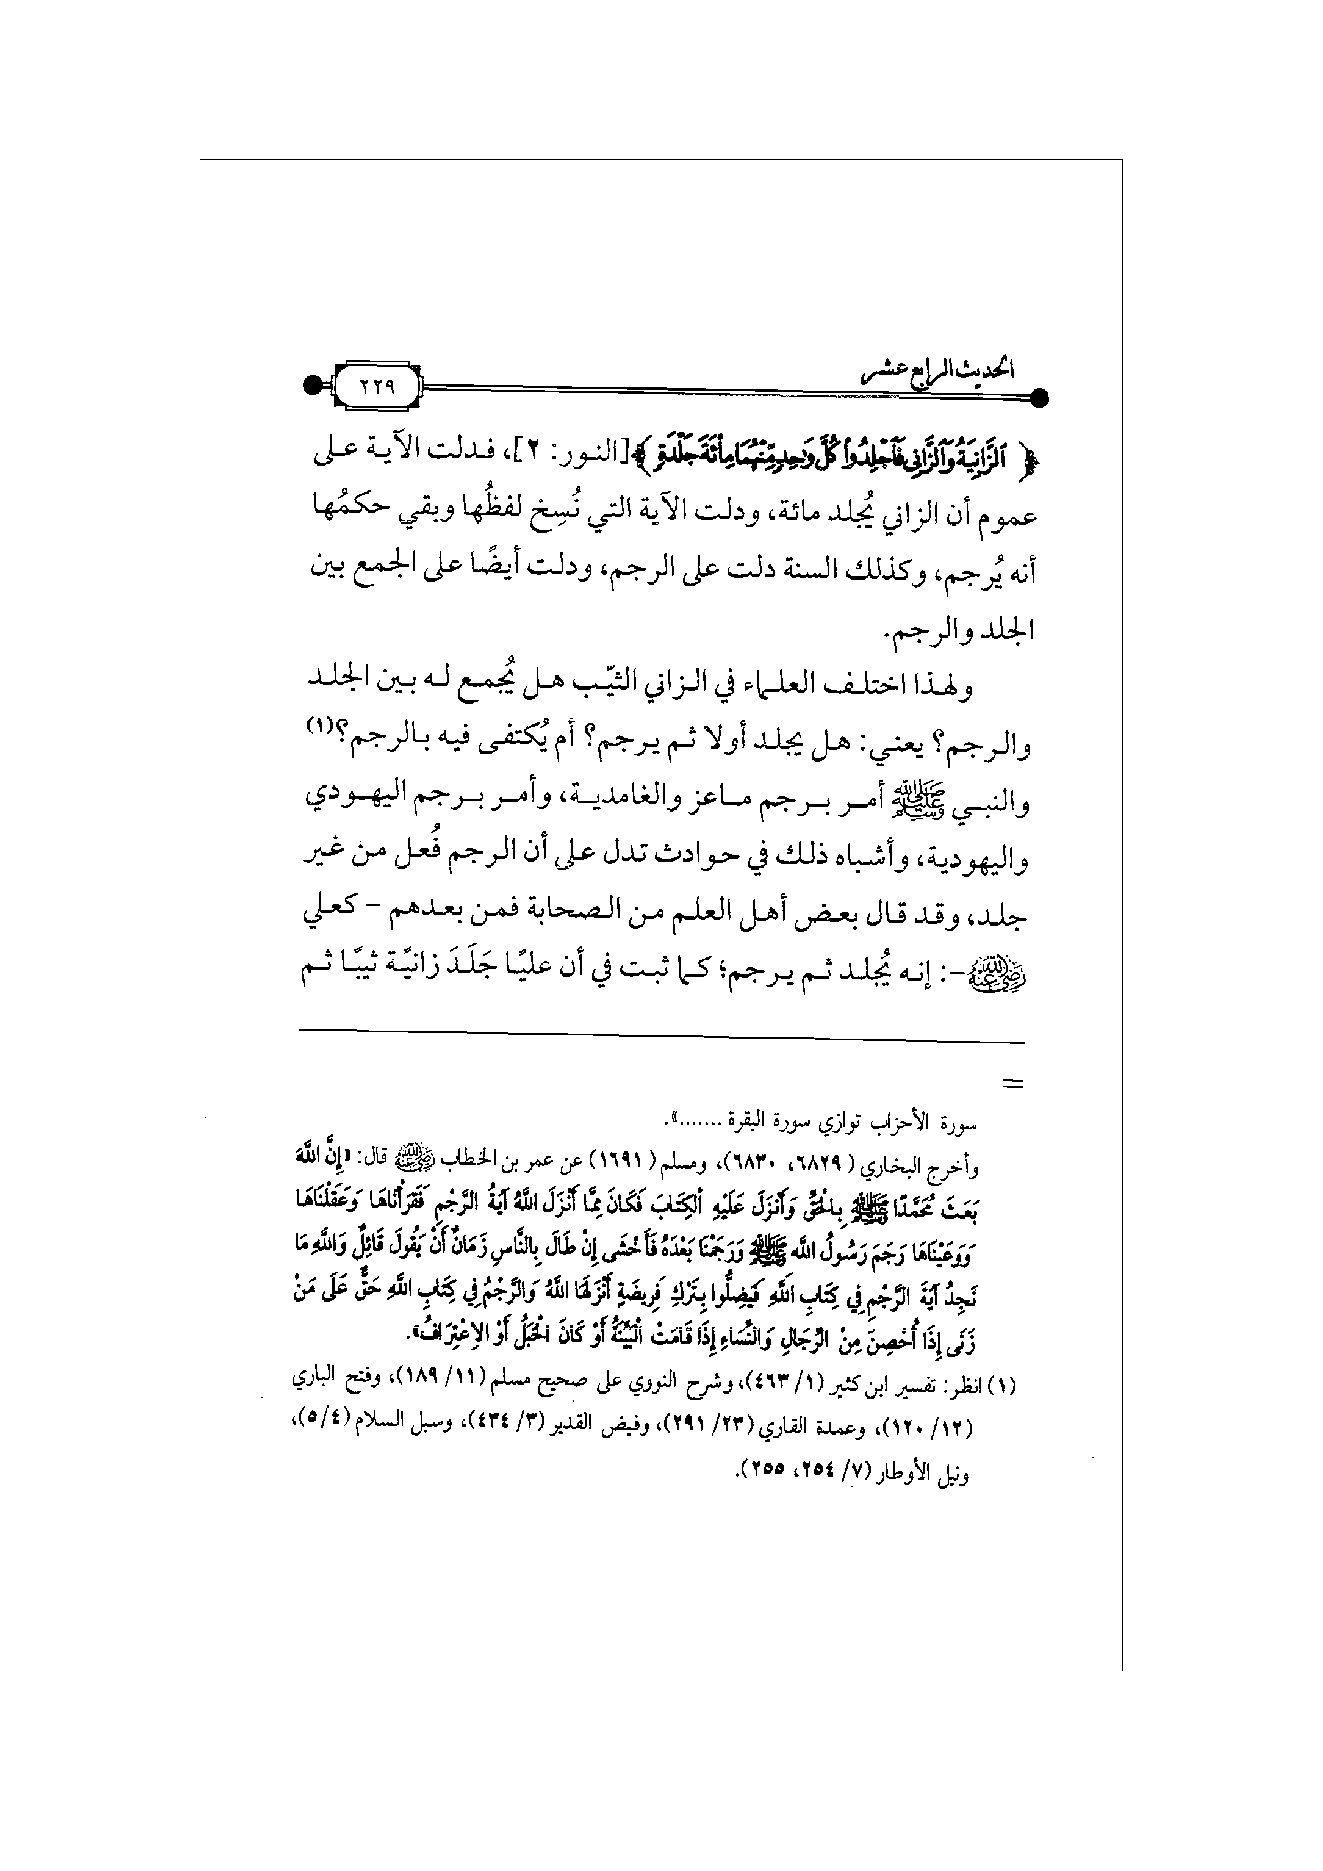 الحديث الرابع عشر
٢٢٩
﴿ ٱلزَّانِيَةُ وَٱلزَّانِي فَٱجْلِدُوا۟ كُلَّ وَٰحِدٍ مِّنْهُمَا مِا۟ئَةَ جَلْدَةٍ ﴾ [النور: ٢]، فدلت الآية على
عموم أن الزاني يُجلد مائة، ودلت الآية التي نُسِخ لفظُها وبقي حكمُها
أنه يُرجم، وكذلك السنة دلت على الرجم، ودلت أيضًا على الجمع بين
الجلد والرجم.
ولهذا اختلف العلماء في الزاني الثيّب هل يُجمع له بين الجلد
والرجم؟ يعني: هل يجلد أولا ثم يرجم؟ أم يُكتفى فيه بالرجم؟(١)
والنبي ﷺ أمر برجم ماعز والغامدية، وأمر برجم اليهودي
واليهودية، وأشباه ذلك في حوادث تدل على أن الرجم فُعل من غير
جلد، وقد قال بعض أهل العلم من الصحابة فمن بعدهم - كعلي
رضي الله عنه -: إنه يُجلد ثم يرجم؛ كما ثبت في أن عليًا جَلَدَ زانيّة ثيبًا ثم
=
سورة الأحزاب توازي سورة البقرة .......».
وأخرج البخاري (٦٨٢٩، ٦٨٣٠)، ومسلم (١٦٩١) عن عمر بن الخطاب رضي الله عنه قال: «إِنَّ اللَّهَ
بَعَثَ مُحَمَّدًا ﷺ بِالْحَقِّ وَأَنْزَلَ عَلَيْهِ الْكِتَابَ فَكَانَ مِمَّا أَنْزَلَ اللَّهُ آيَةُ الرَّجْمِ فَقَرَأْنَاهَا وَعَقَلْنَاهَا
وَوَعَيْنَاهَا رَجَمَ رَسُولُ اللَّه ﷺ وَرَجَمْنَا بَعْدَهُ فَأَخْشَى إِنْ طَالَ بِالنَّاسِ زَمَانٌ أَنْ يَقُولَ قَائِلٌ وَاللَّهِ مَا
نَجِدُ آيَةَ الرَّجْمِ فِي كِتَابِ اللَّهِ فَيَضِلُّوا بِتَرْكِ فَرِيضَةٍ أَنْزَلَهَا اللَّهُ وَالرَّجْمُ فِي كِتَابِ اللَّهِ حَقٌّ عَلَى مَنْ
زَنَى إِذَا أُحْصِنَ مِنْ الرِّجَالِ وَالنِّسَاءِ إِذَا قَامَتْ الْبَيِّنَةُ أَوْ كَانَ الْحَبَلُ أَوْ الِاعْتِرَافُ».
(١) انظر: تفسير ابن كثير (١/ ٤٦٣)، وشرح النووي على صحيح مسلم (١١/ ١٨٩)، وفتح الباري
(١٢/ ١٢٠)، وعمدة القاري (٢٣/ ٢٩١)، وفيض القدير (٣/ ٤٣٤)، وسبل السلام (٤/ ٥)،
ونيل الأوطار (٧/ ٢٥٤، ٢٥٥).